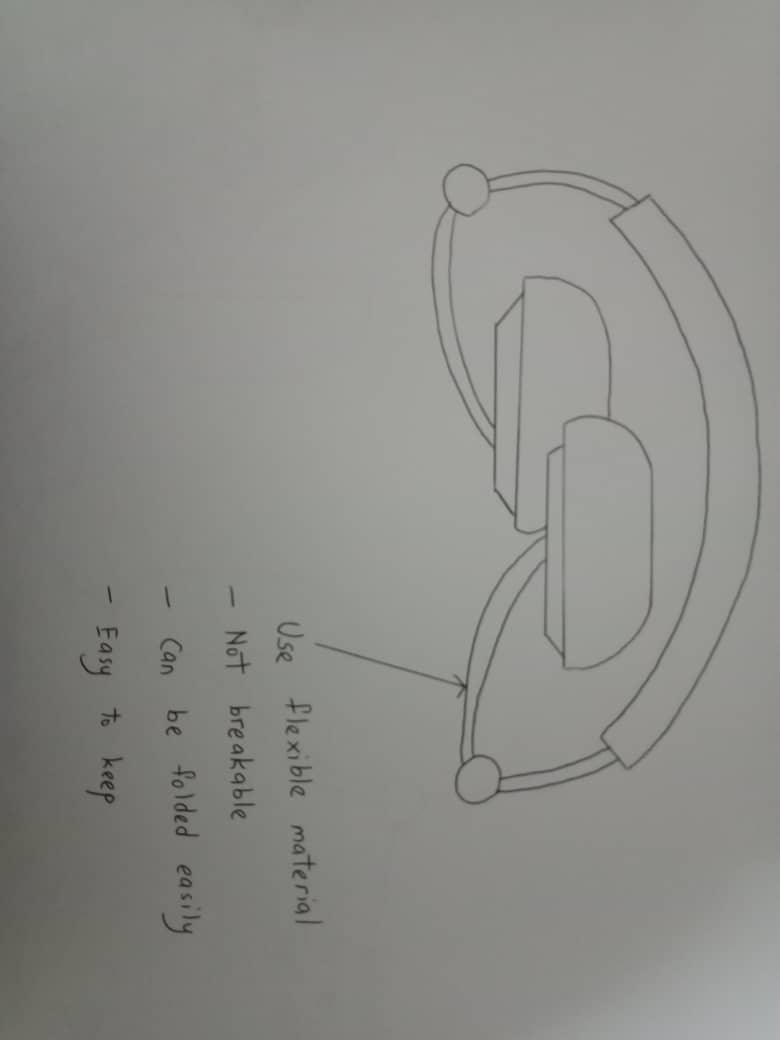 Use flexible material
- Not breakable
- Can be folded easily
- Easy to keep